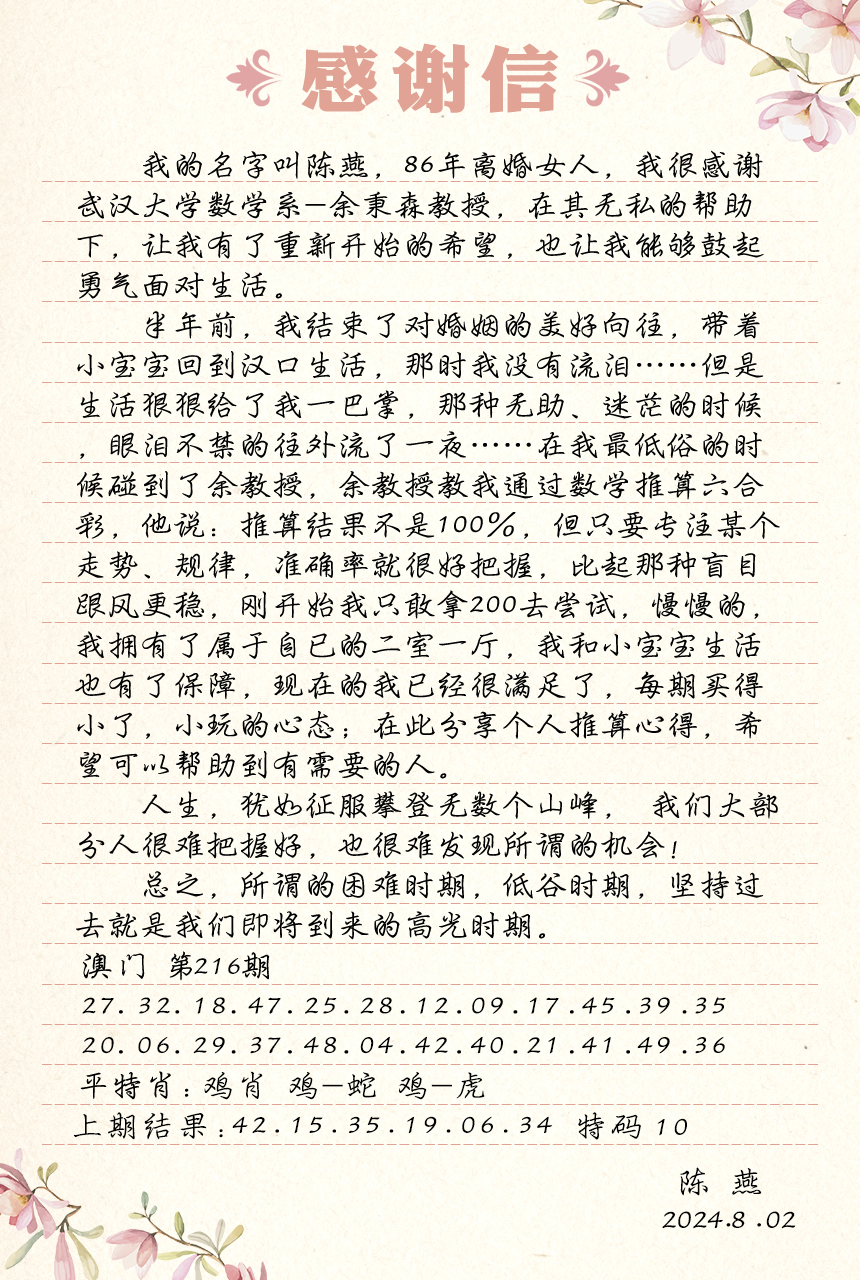 感谢信
我的名字叫陈燕，86年离婚女人，我很感谢
武汉大学数学系—余秉森教授，在其无私的帮助
下，让我有了重新开始的希望，也让我能够鼓起
勇气面对生活。
半年前，我结束了对婚姻的美好向往，带着
小宝宝回到汉口生活，那时我没有流泪……但是
生活狠狠给了我一巴掌，那种无助、迷茫的时候
，眼泪不禁的往外流了一夜……在我最低俗的时
候碰到了余教授，余教授教我通过数学推算六合
彩，他说：推算结果不是100%，但只要专注某个
走势、规律，准确率就很好把握，比起那种盲目
跟风更稳，刚开始我只敢拿200去尝试，慢慢的，
我拥有了属于自已的二室一厅，我和小宝宝生活
也有了保障，现在的我已经很满足了，每期买得
小了，小玩的心态；在此分享个人推算心得，希
望可以帮助到有需要的人。
人生，犹如征服攀登无数个山峰， 我们大部
分人很难把握好，也很难发现所谓的机会！
总之，所谓的困难时期，低谷时期，坚持过
去就是我们即将到来的高光时期。
澳门 第216期
27.32.18.47.25.28.12.09.17.45.39.35
20.06.29.37.48.04.42.40.21.41.49.36
平特肖：鸡肖 鸡—蛇 鸡—虎
上期结果：42.15.35.19.06.34 特码 10
陈 燕
2024.8.02